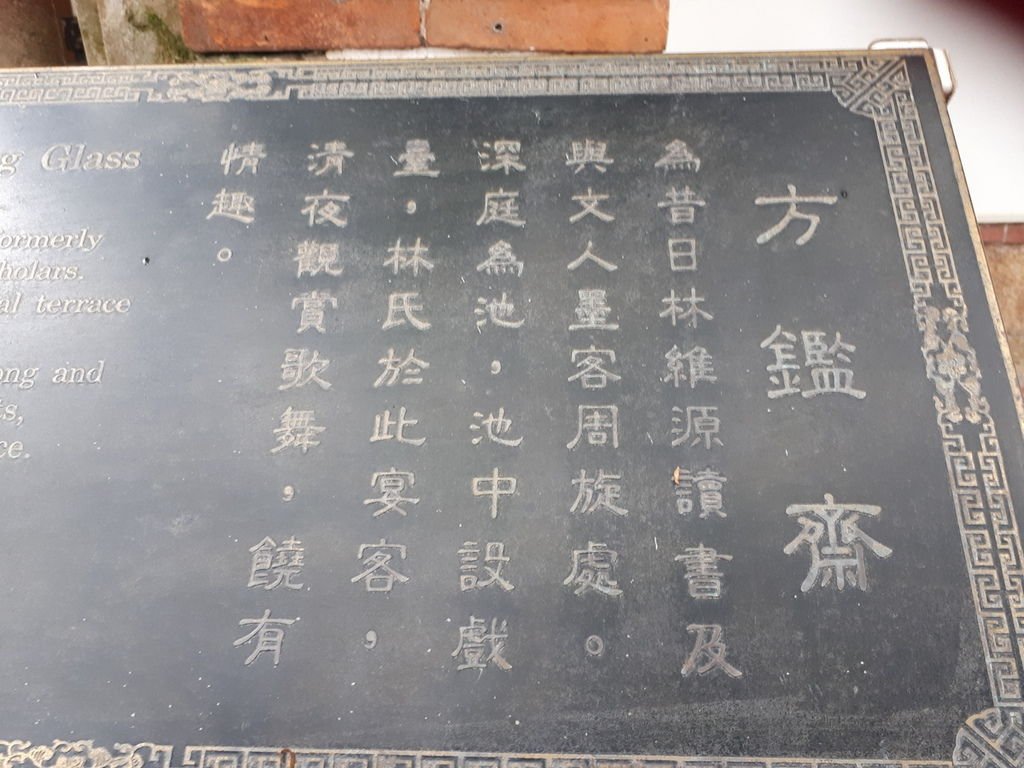 方鑑齋
為昔日林維源讀書及
與文人墨客周旋處。
深庭為池，池中設戲
臺，林氏於此宴客，
清夜觀賞歌舞，饒有
情趣。
Glass
formerly
terrace
and